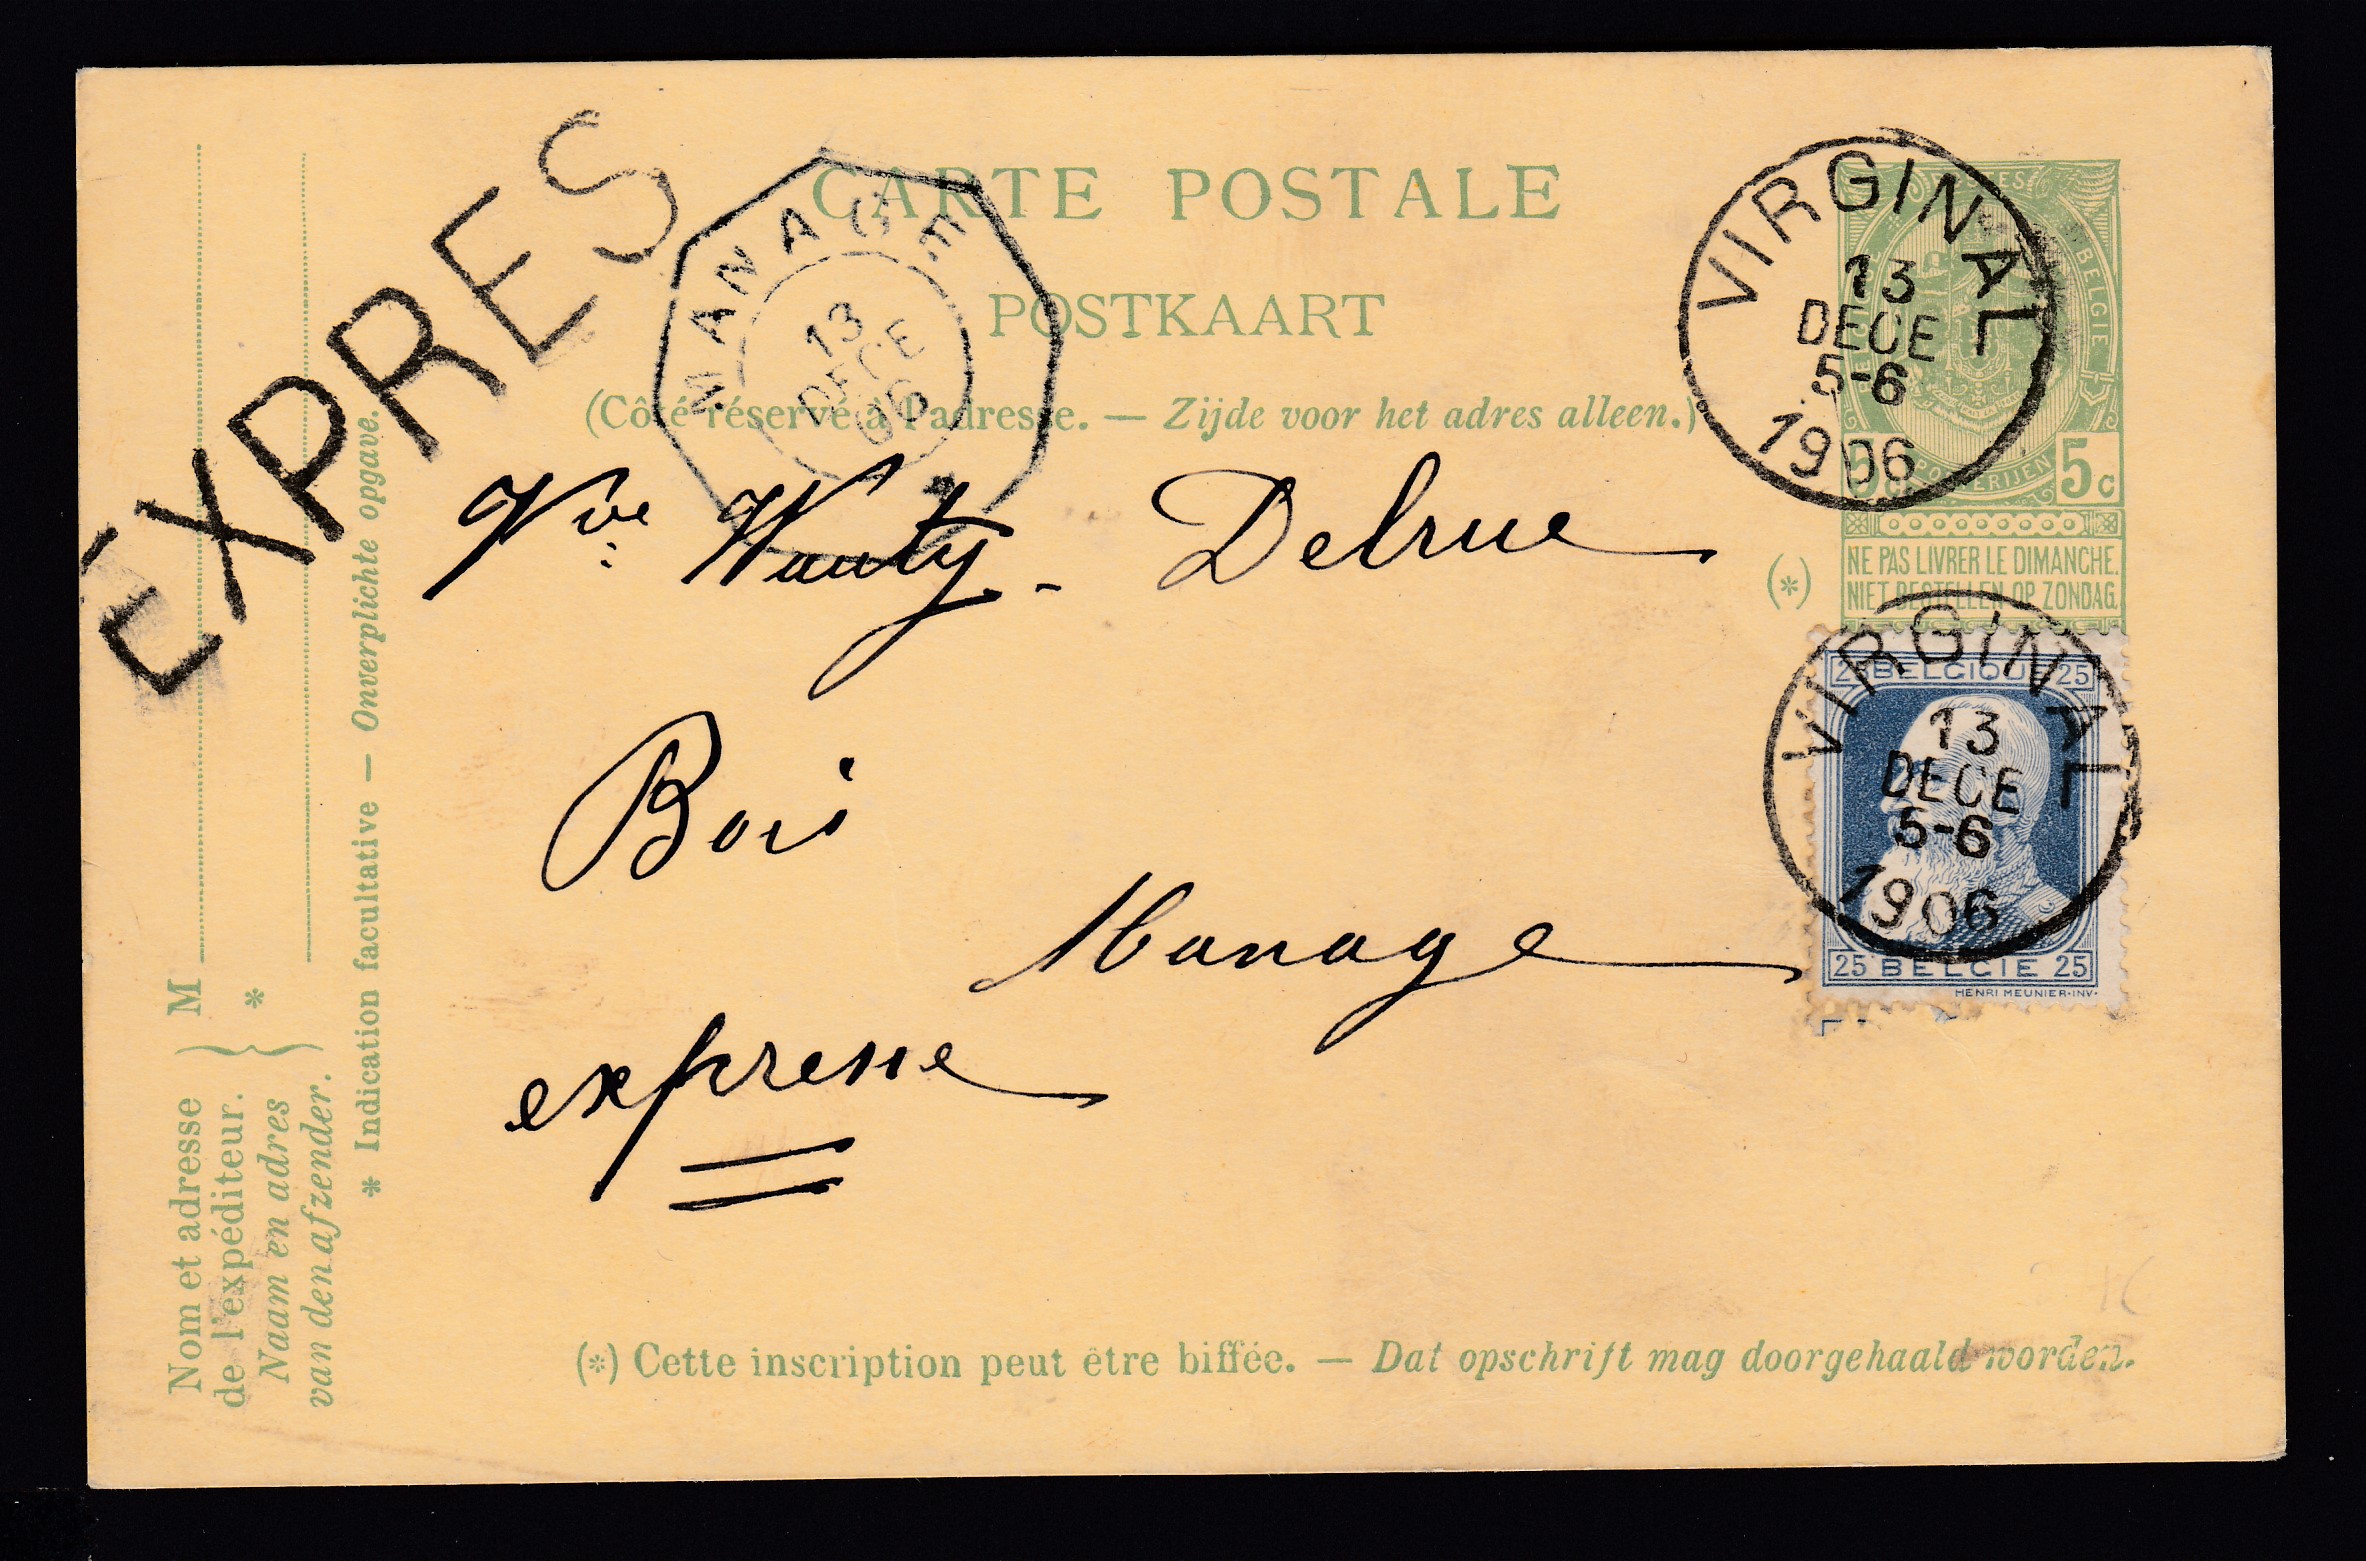 EXPRES
CARTE POSTALE
POSTKAART
(Côté réservé à l'adresse. — Zijde voor het adres alleen.)
MANAGE
13
DECE
06
VIRGINAL
13
DECE
5-6
1906
BELGIE
POSTERIJEN
5c
(*)
NE PAS LIVRER LE DIMANCHE.
NIET BESTELLEN OP ZONDAG.
VIRGINAL
13
DECE
5-6
1906
25 BELGIQUE 25
25 BELGIE 25
HENRI MEUNIER·INV·
Vve Wauty - Delrue
Bois
Manage
expresse
Nom et adresse
de l'expéditeur.
Naam en adres
van den afzender.
M
*
* Indication facultative — Onverplichte opgave.
(*) Cette inscription peut être biffée. — Dat opschrift mag doorgehaald worden.